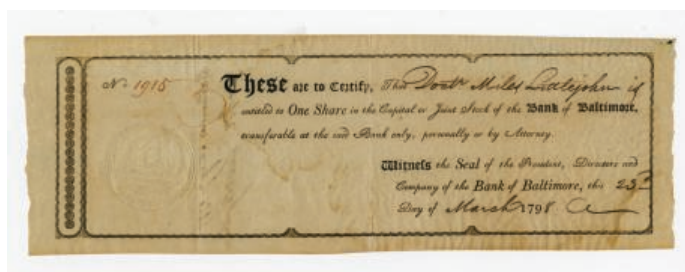 No 1915
These are to Certify, That Doctr Miles Littlejohn is
entitled to One Share in the Capital or Joint Stock of the Bank of Baltimore,
transferable at the said Bank only, personally or by Attorney.
Witneſs the Seal of the President, Directors and
Company of the Bank of Baltimore, this 23d
Day of March 1798